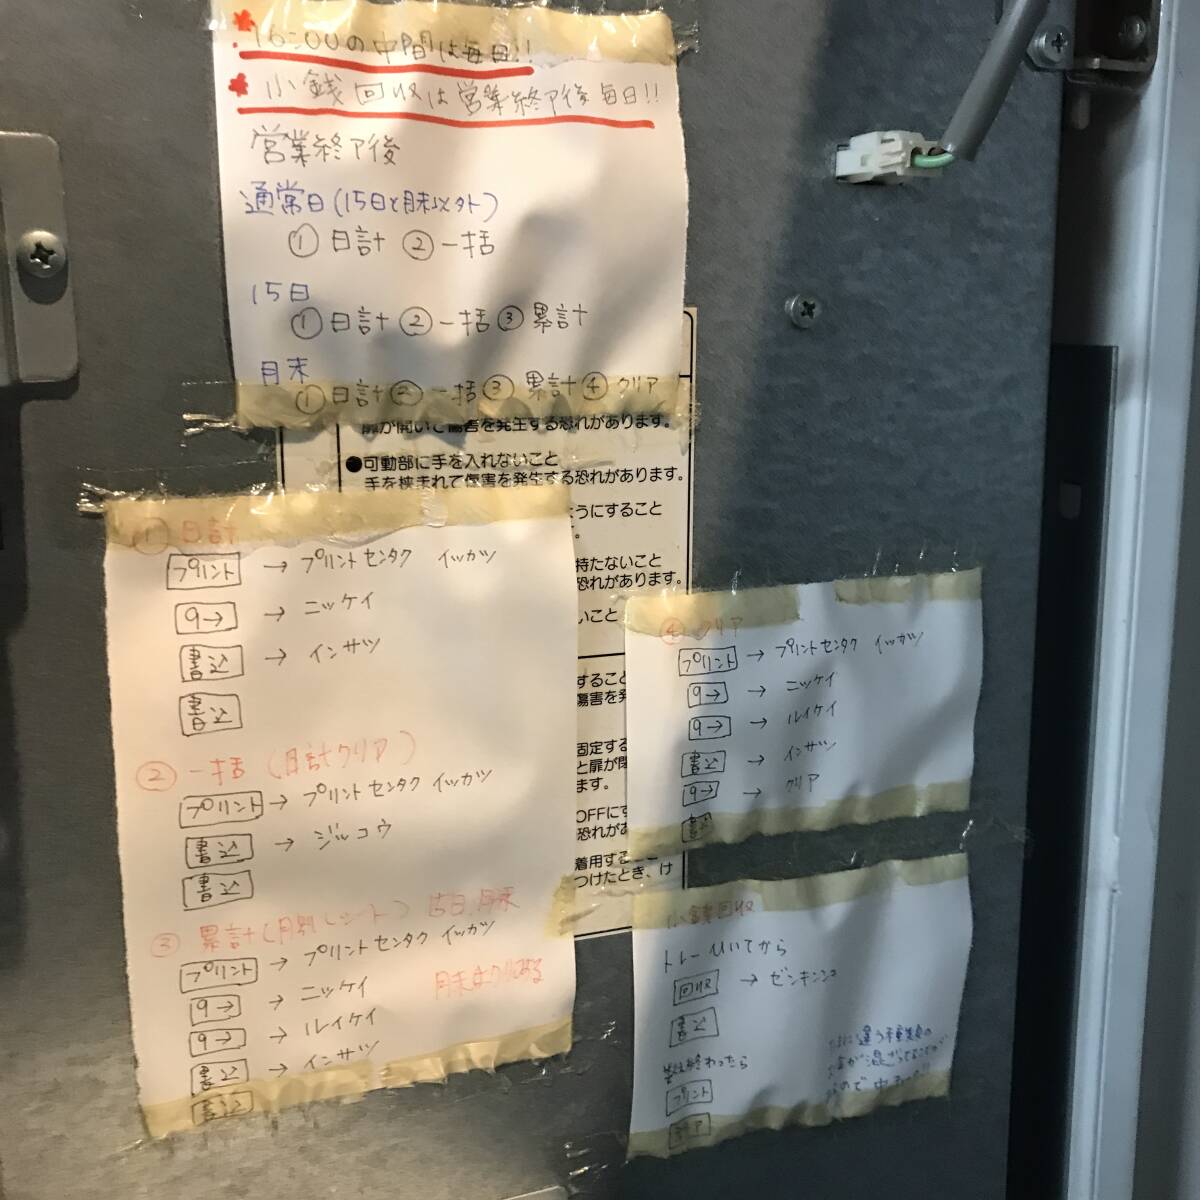 16:00の中間は毎日!!
小銭回収は営業終了後毎日!!
営業終了後
通常日(15日と月末以外)
① 日計 ② 一括
15日
① 日計 ② 一括 ③ 累計
月末
① 日計 ② 一括 ③ 累計 ④ クリア
扉が開いて傷害を発生する恐れがあります。
●可動部に手を入れないこと
手を挟まれて傷害を発生する恐れがあります。
ようにすること
持たないこと
恐れがあります。
いこと
すること
傷害を発
固定する
と扉が閉
ます。
OFFにす
恐れがあ
着用すること
つけたとき、け
① 日計
プリント → プリントセンタク イッカツ
9→ → ニッケイ
書込 → インサツ
書込
② 一括 (日計クリア)
プリント → プリントセンタク イッカツ
書込 → ジッコウ
書込
③ 累計(月別レシート) 15日、月末
プリント → プリントセンタク イッカツ
9→ → ニッケイ
9→ → ルイケイ
書込 → インサツ
書込
④ クリア
プリント → プリントセンタク イッカツ
9→ → ニッケイ
9→ → ルイケイ
書込 → インサツ
9→ → クリア
書込
小銭回収
トレーひいてから
回収 → ゼンキンシュ
書込
終わったら
プリント
クリア
違う種類の
が混ざってることが
ので